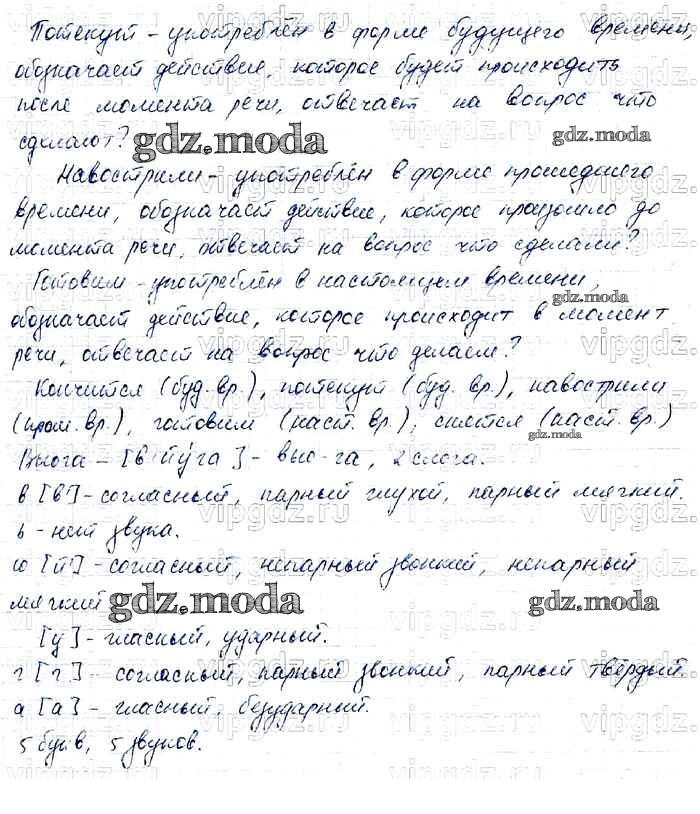 Потекут - употреблён в форме будущего времени,
обозначает действие, которое будет происходить
после момента речи, отвечает на вопрос что
сделают?
gdz.moda
gdz.moda
Навострили - употреблён в форме прошедшего
времени, обозначает действие, которое произошло до
момента речи, отвечает на вопрос что сделали?
Готовим - употреблён в настоящем времени,
gdz.moda
обозначает действие, которое происходит в момент
речи, отвечает на вопрос что делаем?
Кончится (буд. вр.), потекут (буд. вр.), навострили
(прош. вр.), готовим (наст. вр.), снится (наст. вр.)
gdz.moda
Вьюга - [в'й'у́га] - вью-га, 2 слога.
в [в'] - согласный, парный глухой, парный мягкий.
ь - нет звука.
ю [й'] - согласный, непарный звонкий, непарный
мягкий
gdz.moda
gdz.moda
[у] - гласный, ударный.
г [г] - согласный, парный звонкий, парный твёрдый.
а [а] - гласный, безударный.
5 букв, 5 звуков.